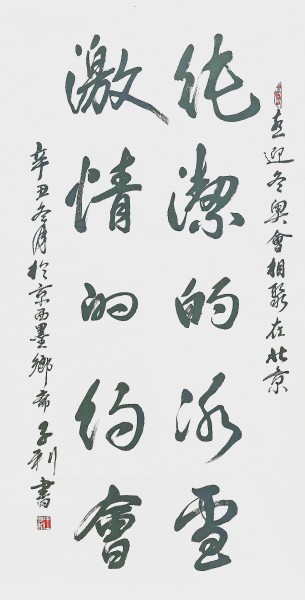 喜迎冬奧會相聚在北京
純潔的冰雪
激情的約會
辛丑冬月於京西墨鄉齋子利書